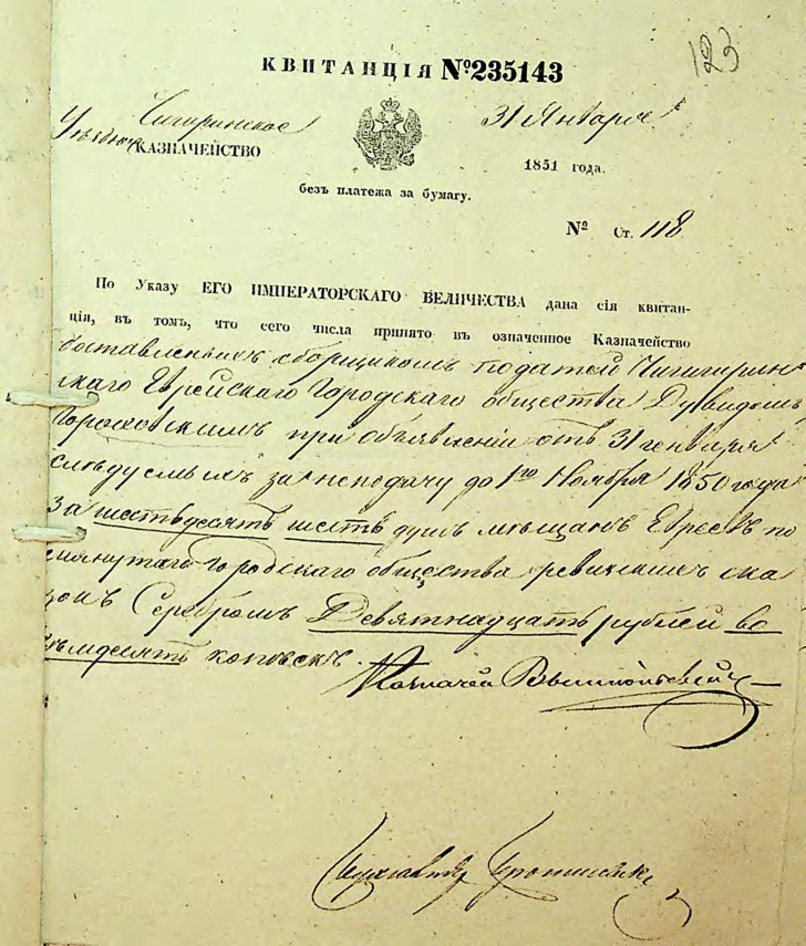 123
КВИТАНЦІЯ №235143
Чигиринское
31 Января
Уѣздное КАЗНАЧЕЙСТВО
1851 года.
безъ платежа за бумагу.
№ Ст. 118
По Указу ЕГО ИМПЕРАТОРСКАГО ВЕЛИЧЕСТВА дана сія квитан-
ція, въ томъ, что сего числа принято въ означенное Казначейство
доставленныхъ сборщикомъ податей Чигирин
скаго Еврейскаго Городскаго общества Дувидомъ
Гороховскимъ при объявленіи отъ 31 генваря
слѣдуемыхъ за неподачу до 1го Ноября 1850 года
За шестьдесятъ шесть душъ мѣщанъ Евреевъ по
мянутаго Городскаго общества ревизкихъ ска
зокъ Серебромъ Девятнадцать рублей во
семдесятъ копѣекъ.
Казначей
Бухгалтеръ